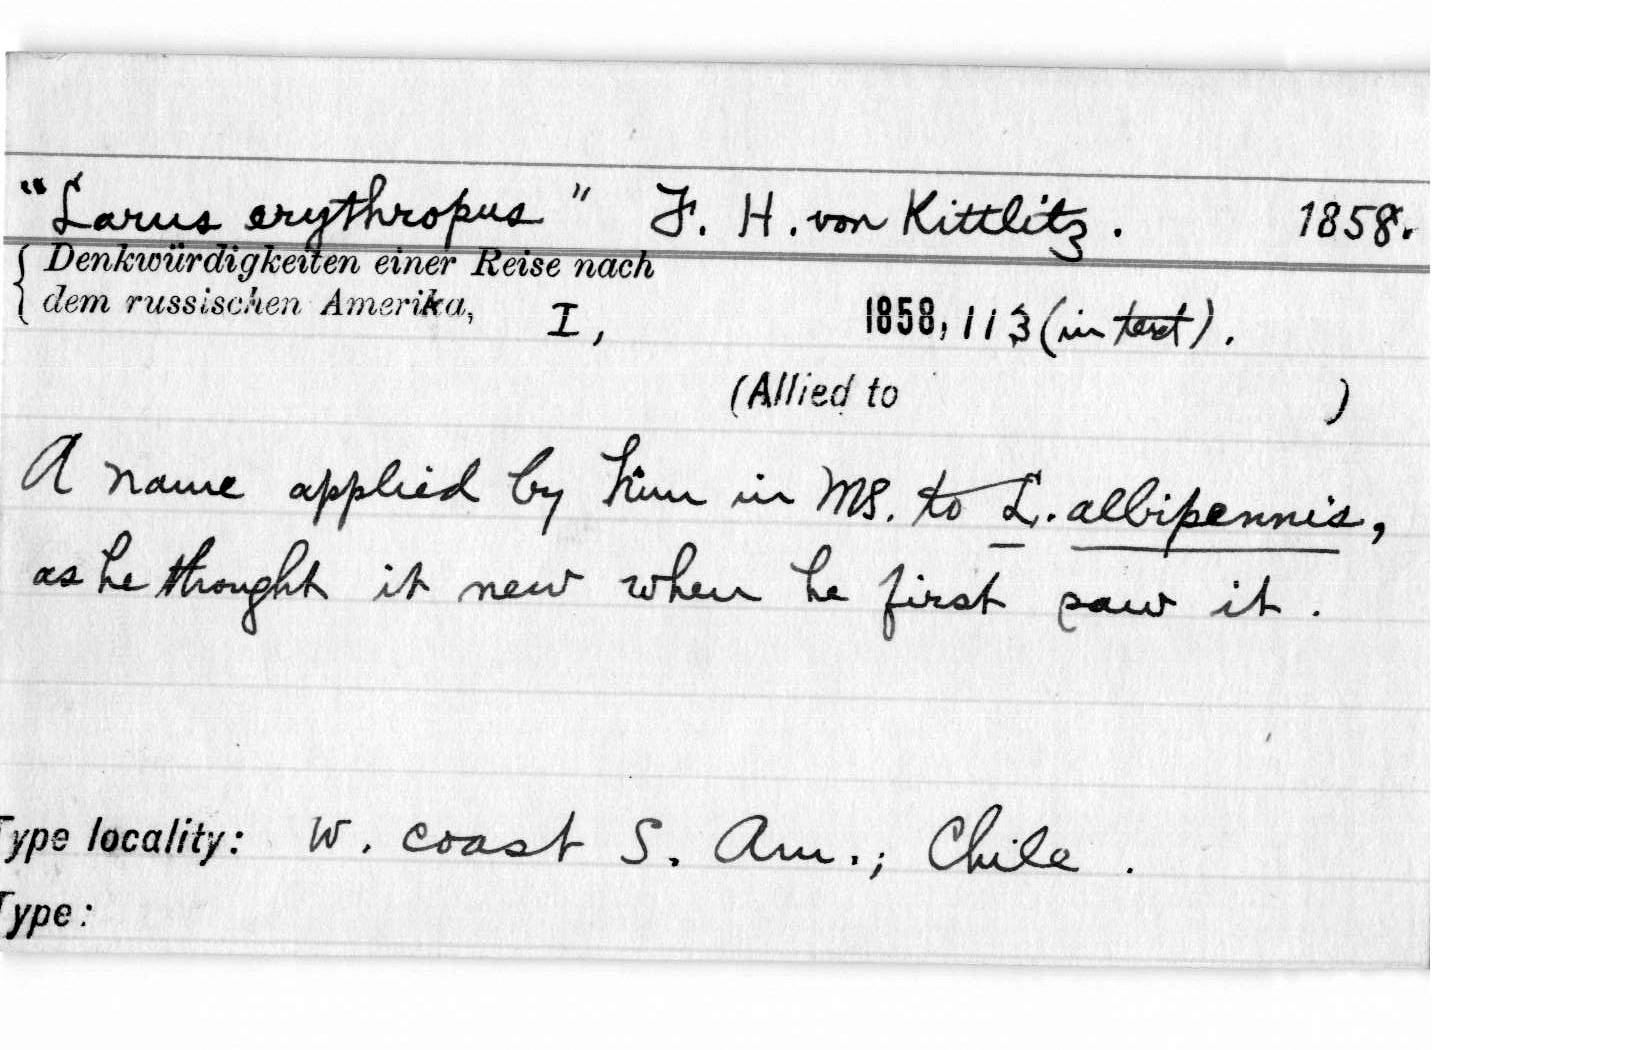 "Larus erythropus" F. H. von Kittlitz. 1858.
Denkwürdigkeiten einer Reise nach
dem russischen Amerika, I, 1858, 113 (in text).
(Allied to )
A name applied by him in MS. to L. albipennis,
as he thought it new when he first saw it.
Type locality: W. coast S. Am.; Chile.
Type: